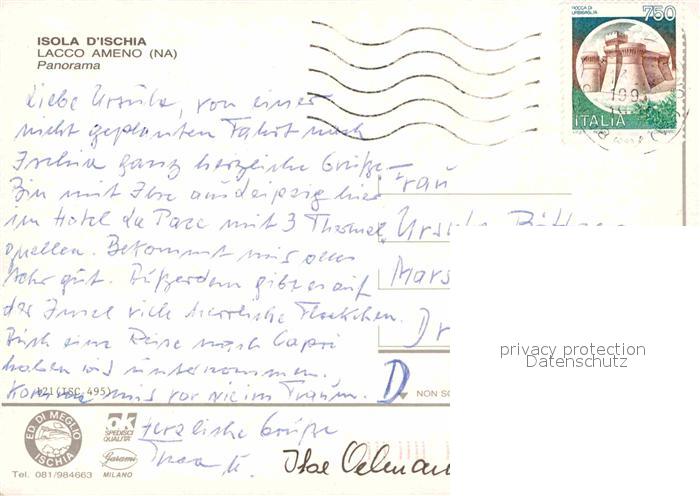 ISOLA D'ISCHIA
LACCO AMENO (NA)
Panorama
ROCCA DI URBISAGLIA
750
ITALIA
Liebe Ursula, von einer
nicht geplanten Fahrt nach
Ischia ganz herzliche Grüße
Bin mit Ilse aus Leipzig hier
im Hotel La Pace mit 3 Thermal
quellen. Bekommt mir alles
sehr gut. Außerdem gibt es auf
der Insel viele herrliche Fleckchen.
Auch eine Reise nach Capri
haben wir unternommen.
Komme mir vor wie im Traum.
Herzliche Grüße
Frau
Ursula
Mars
Dr
D
121(ISC 495)
NON SC
ED DI MEGLIO
ISCHIA
Tel. 081/984663
OK
SPEDISCI
QUALITÀ
Garami
MILANO
Ilse
privacy protection
Datenschutz